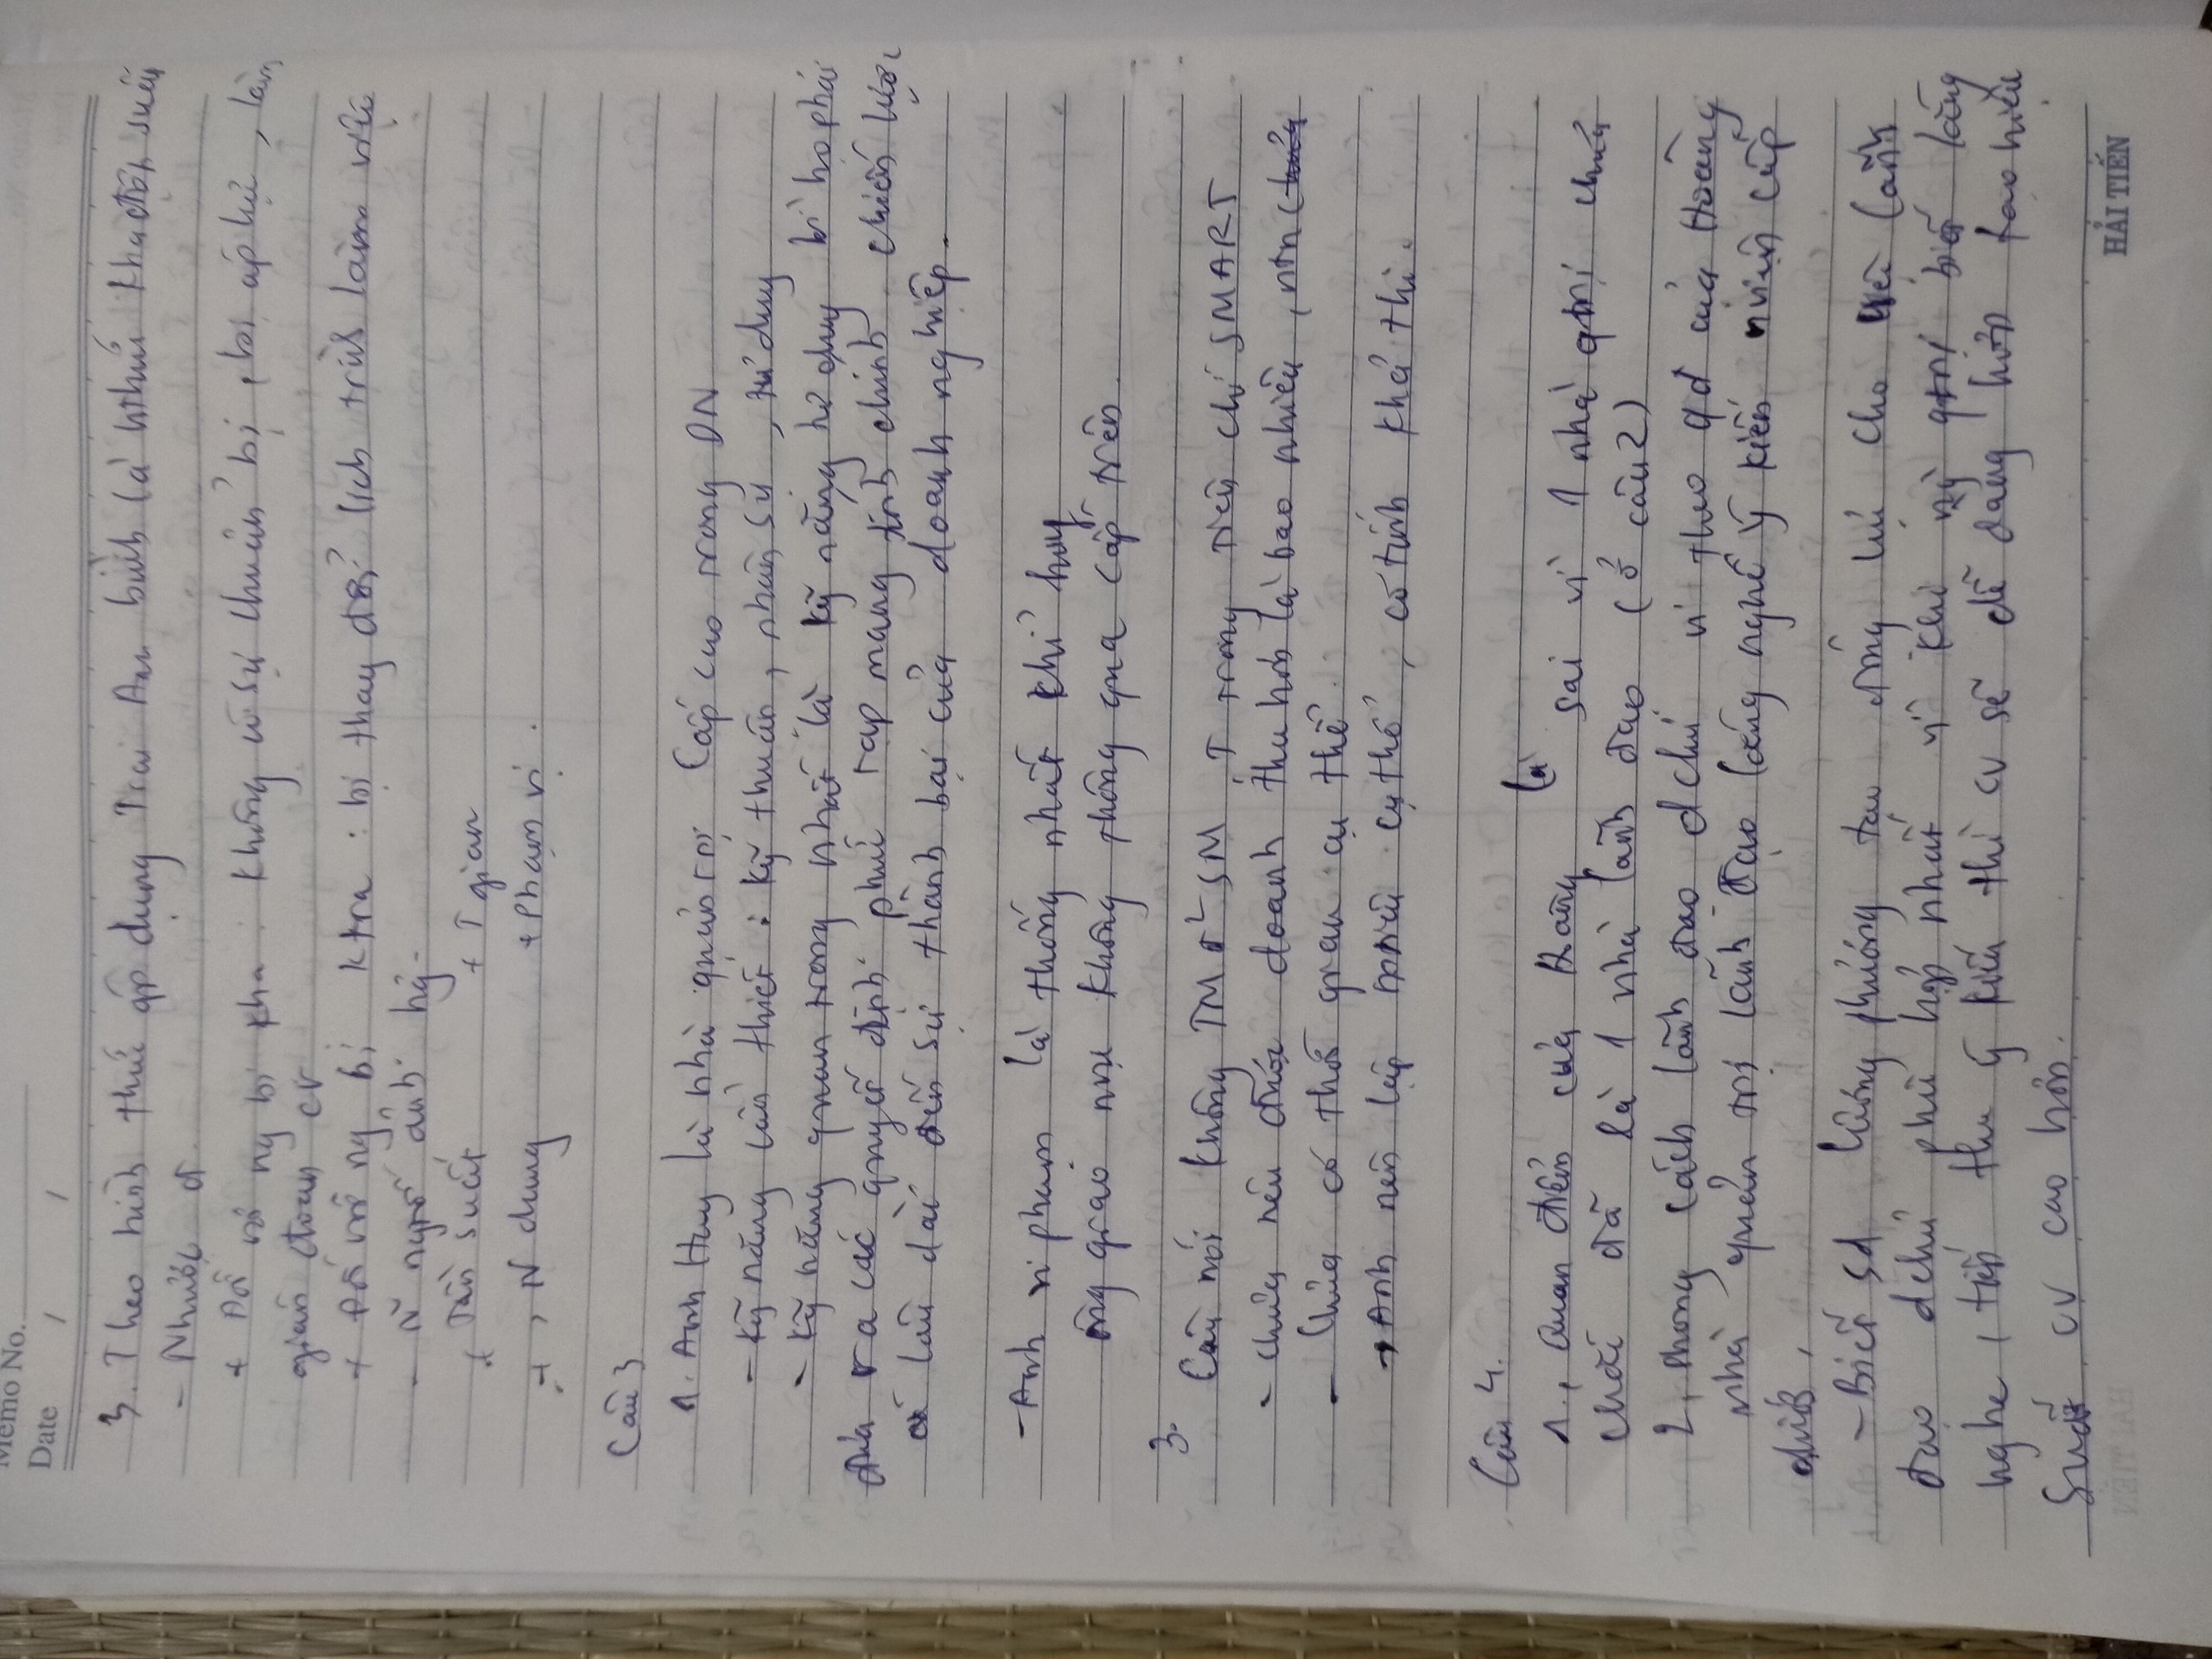 Memo No.
Date / /
3. Theo hình thức áp dụng Trại An bình là hthức ktra đột xuất
- Nhược đ
+ Đối với ng bị ktra : Không có sự chuẩn bị , bị áp lực , làm
gián đoạn cv
+ Đối với ng bị ktra : bị thay đổi lịch trình làm việc
ảnh hg
+ Tần suất + T gian
+ , N dung + Phạm vi .
Câu 3
1. Anh Huy là nhà quản trị Cấp cao trong DN
- Kỹ năng cần thiết : kỹ thuân, nhân sự , tư duy
- Kỹ năng quan trọng nhất là kỹ năng tư duy bì họ phải
đưa ra các quyết định phức rạp mang tính chính chiến lược
lâu dài đến sự thành bại của doanh nghiệp.
- Anh vi phạm là thống nhất chỉ huy
ông giao nvu không thông qua cấp trên.
3.
Câu nói không TM đ² SM , T trong tiêu chí SMART
- Chưa nêu được doanh thu hơn là bao nhiêu , ntn
- Chưa có thời gian cụ thể .
→ Anh nên lập mtiêu cụ thể , có tính khả thi .
Câu 4.
1., Quan điểm của Hoàng là sai vì 1 nhà qtrị chưa
chắc đã là 1 nhà lãnh đạo (ở câu 2)
2, Phong cách lãnh đạo dchủ vì theo qđ của Hoàng
nhà quản trị lãnh đạo lắng nghe ý kiến nviên cấp
dưới ,
- Biết sd lương thưởng tạo động lực cho lãnh
đạo dchủ phù hợp nhất vì khi qtrị biết lắng
nghe , tiếp thu ý kiến thì cv sẽ dễ dàng hơn tạo hiệu
Suất cv cao hơn.
HẢI TIẾN